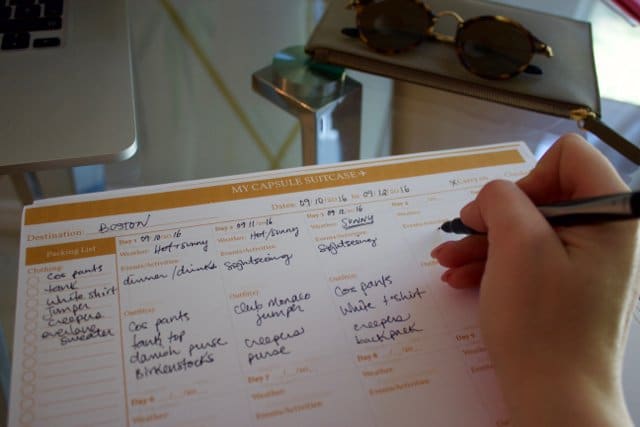 MY CAPSULE SUITCASE
Destination: BOSTON
Dates: 09.10/2016 to 09/12.2016
x Carry on
Packing List
Clothing:
Cos pants
tank
white shirt
jumper
creepers
sweater
Day 1 09.10/2016
Weather: Hot + sunny
Events/Activities:
dinner/drinks
Outfit(s)
Cos pants
tank top
danish purse
Birkenstocks
Day 2 09.11/2016
Weather: Hot/sunny
Events/Activities:
Sightseeing
Outfit(s)
Club Monaco
jumper
creepers
purse
Day 3 09.12/2016
Weather: SUNNY
Events/Activities:
Sightseeing
Outfit(s)
Cos pants
White t-shirt
creepers
backpack
Day 4
Weather:
Events/Activities
Day 6
Weather:
Events/Activities:
Day 7
Weather:
Events/Activities:
Day 8
Weather:
Events/Activities: